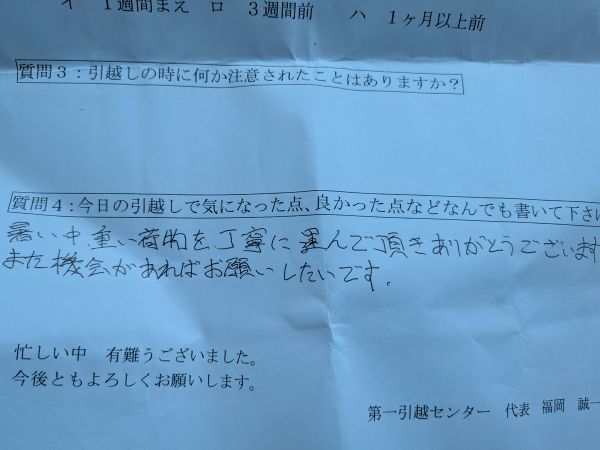 イ 1週間まえ ロ 3週間前 ハ 1ヶ月以上前
質問3：引越しの時に何か注意されたことはありますか？
質問4：今日の引越しで気になった点、良かった点などなんでも書いて下さい
暑い中、重い荷物を丁寧に運んで頂きありがとうございます
また機会があればお願いしたいです。
忙しい中 有難うございました。
今後ともよろしくお願いします。
第一引越センター 代表 福岡 誠一